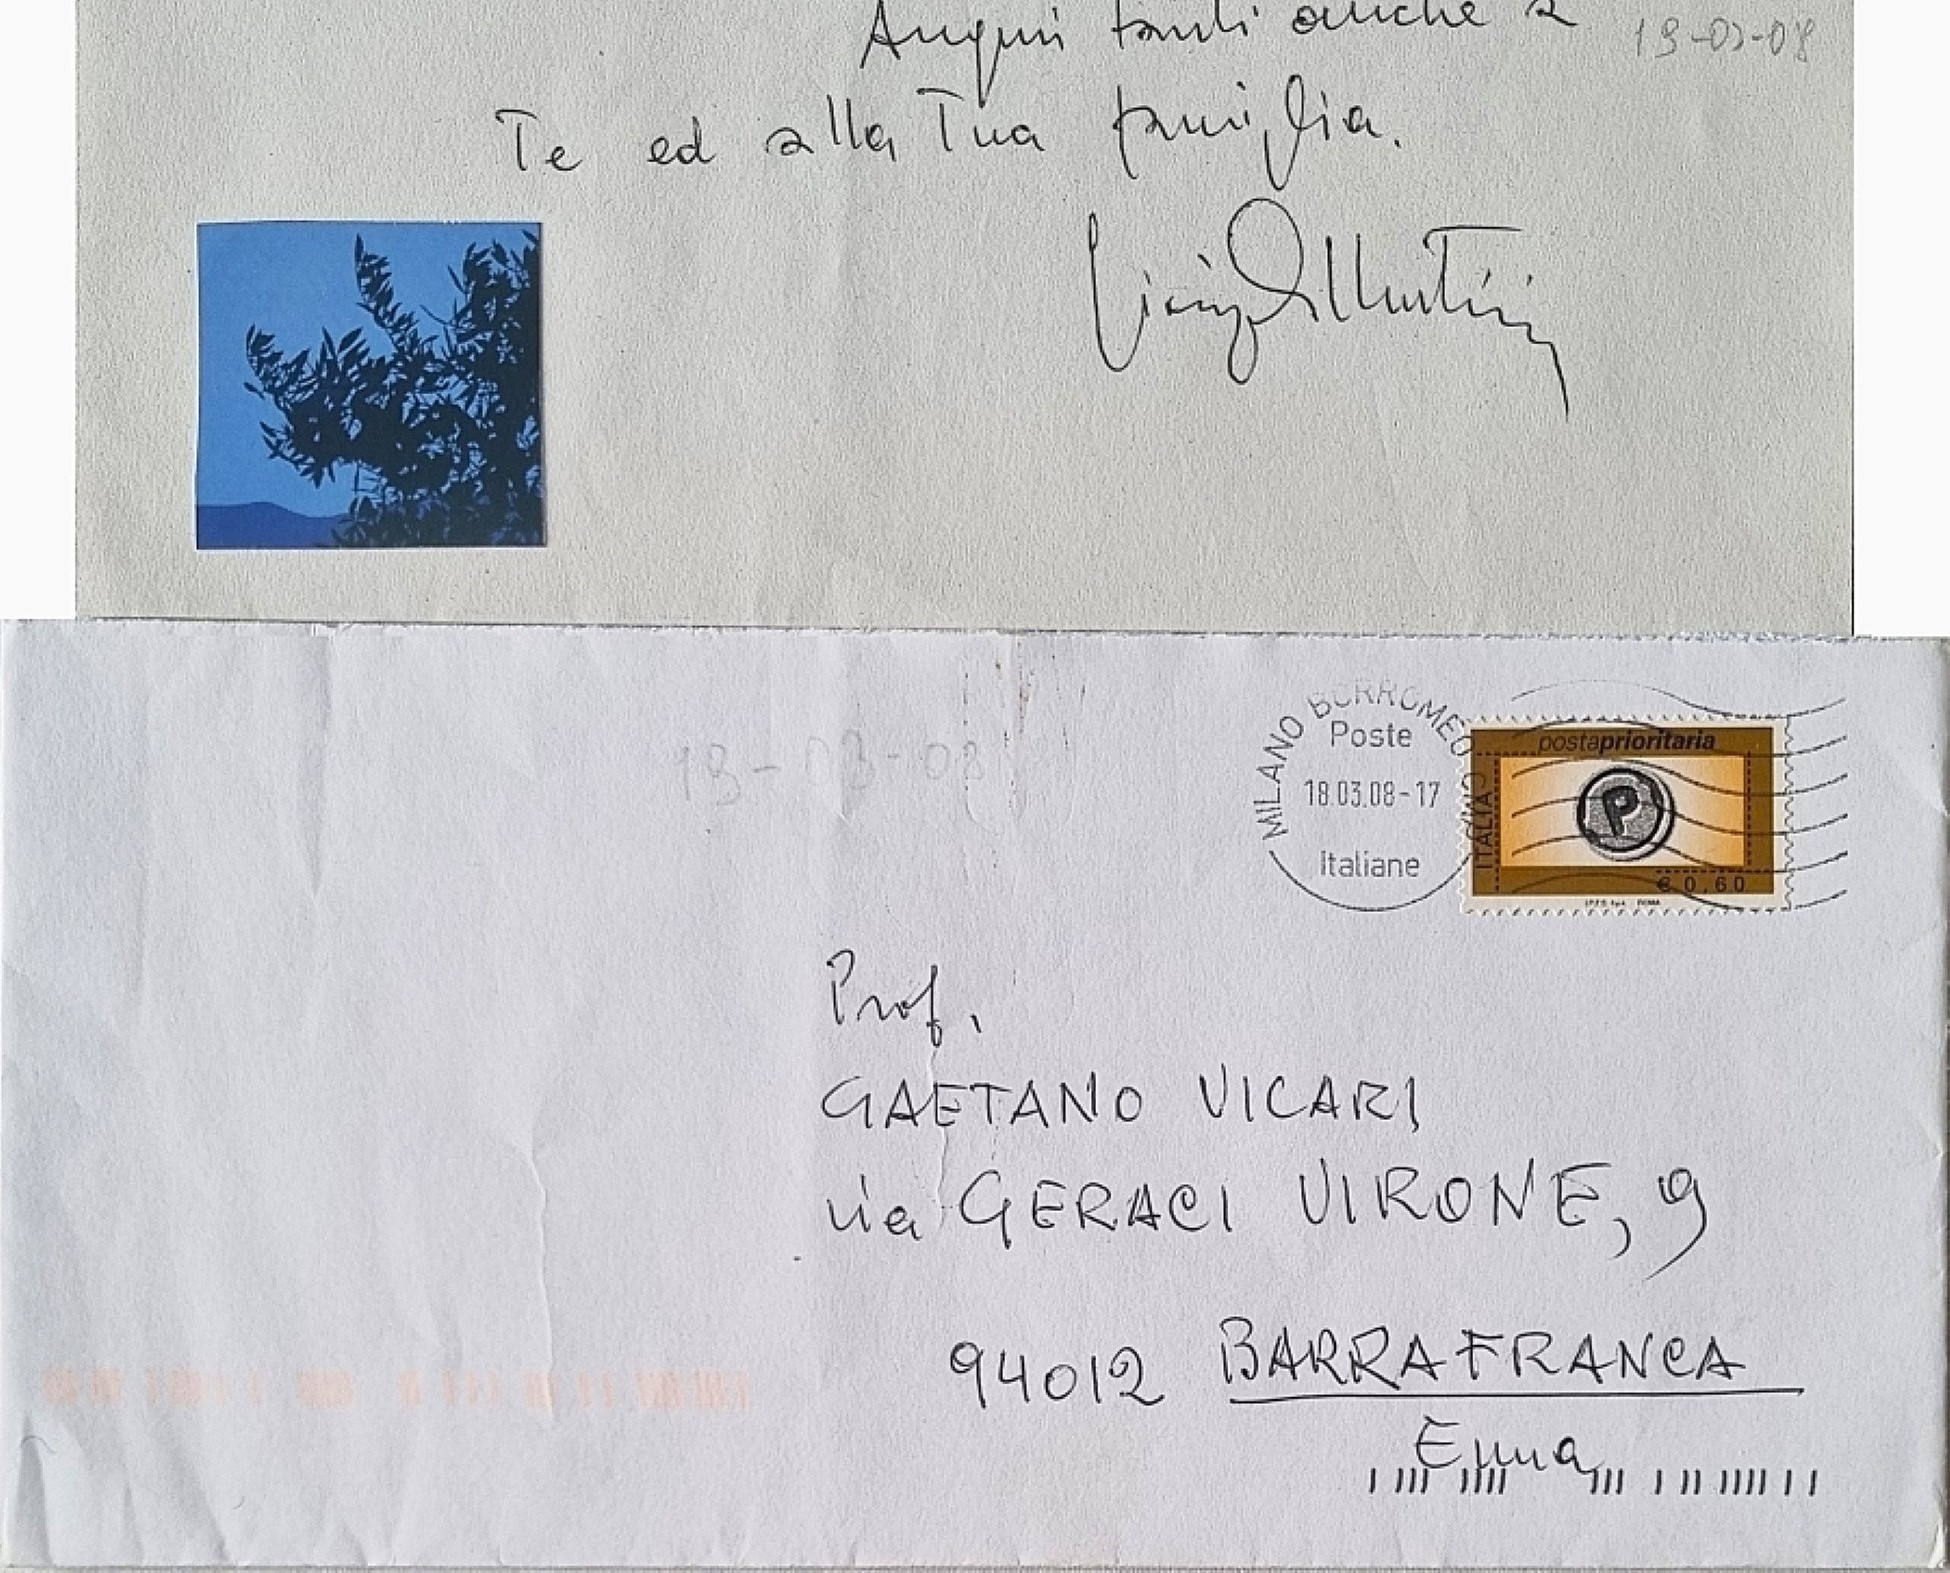 Auguri tanti anche a
19-03-08
Te ed alla Tua famiglia.
19-03-08
MILANO BORROMEO
Poste
18.03.08-17
Italiane
postaprioritaria
P
ITALIA
€ 0,60
I.P.Z.S. S.p.A. ROMA
Prof.
GAETANO VICARI
via GERACI VIRONE, 9
94012 BARRAFRANCA
Enna